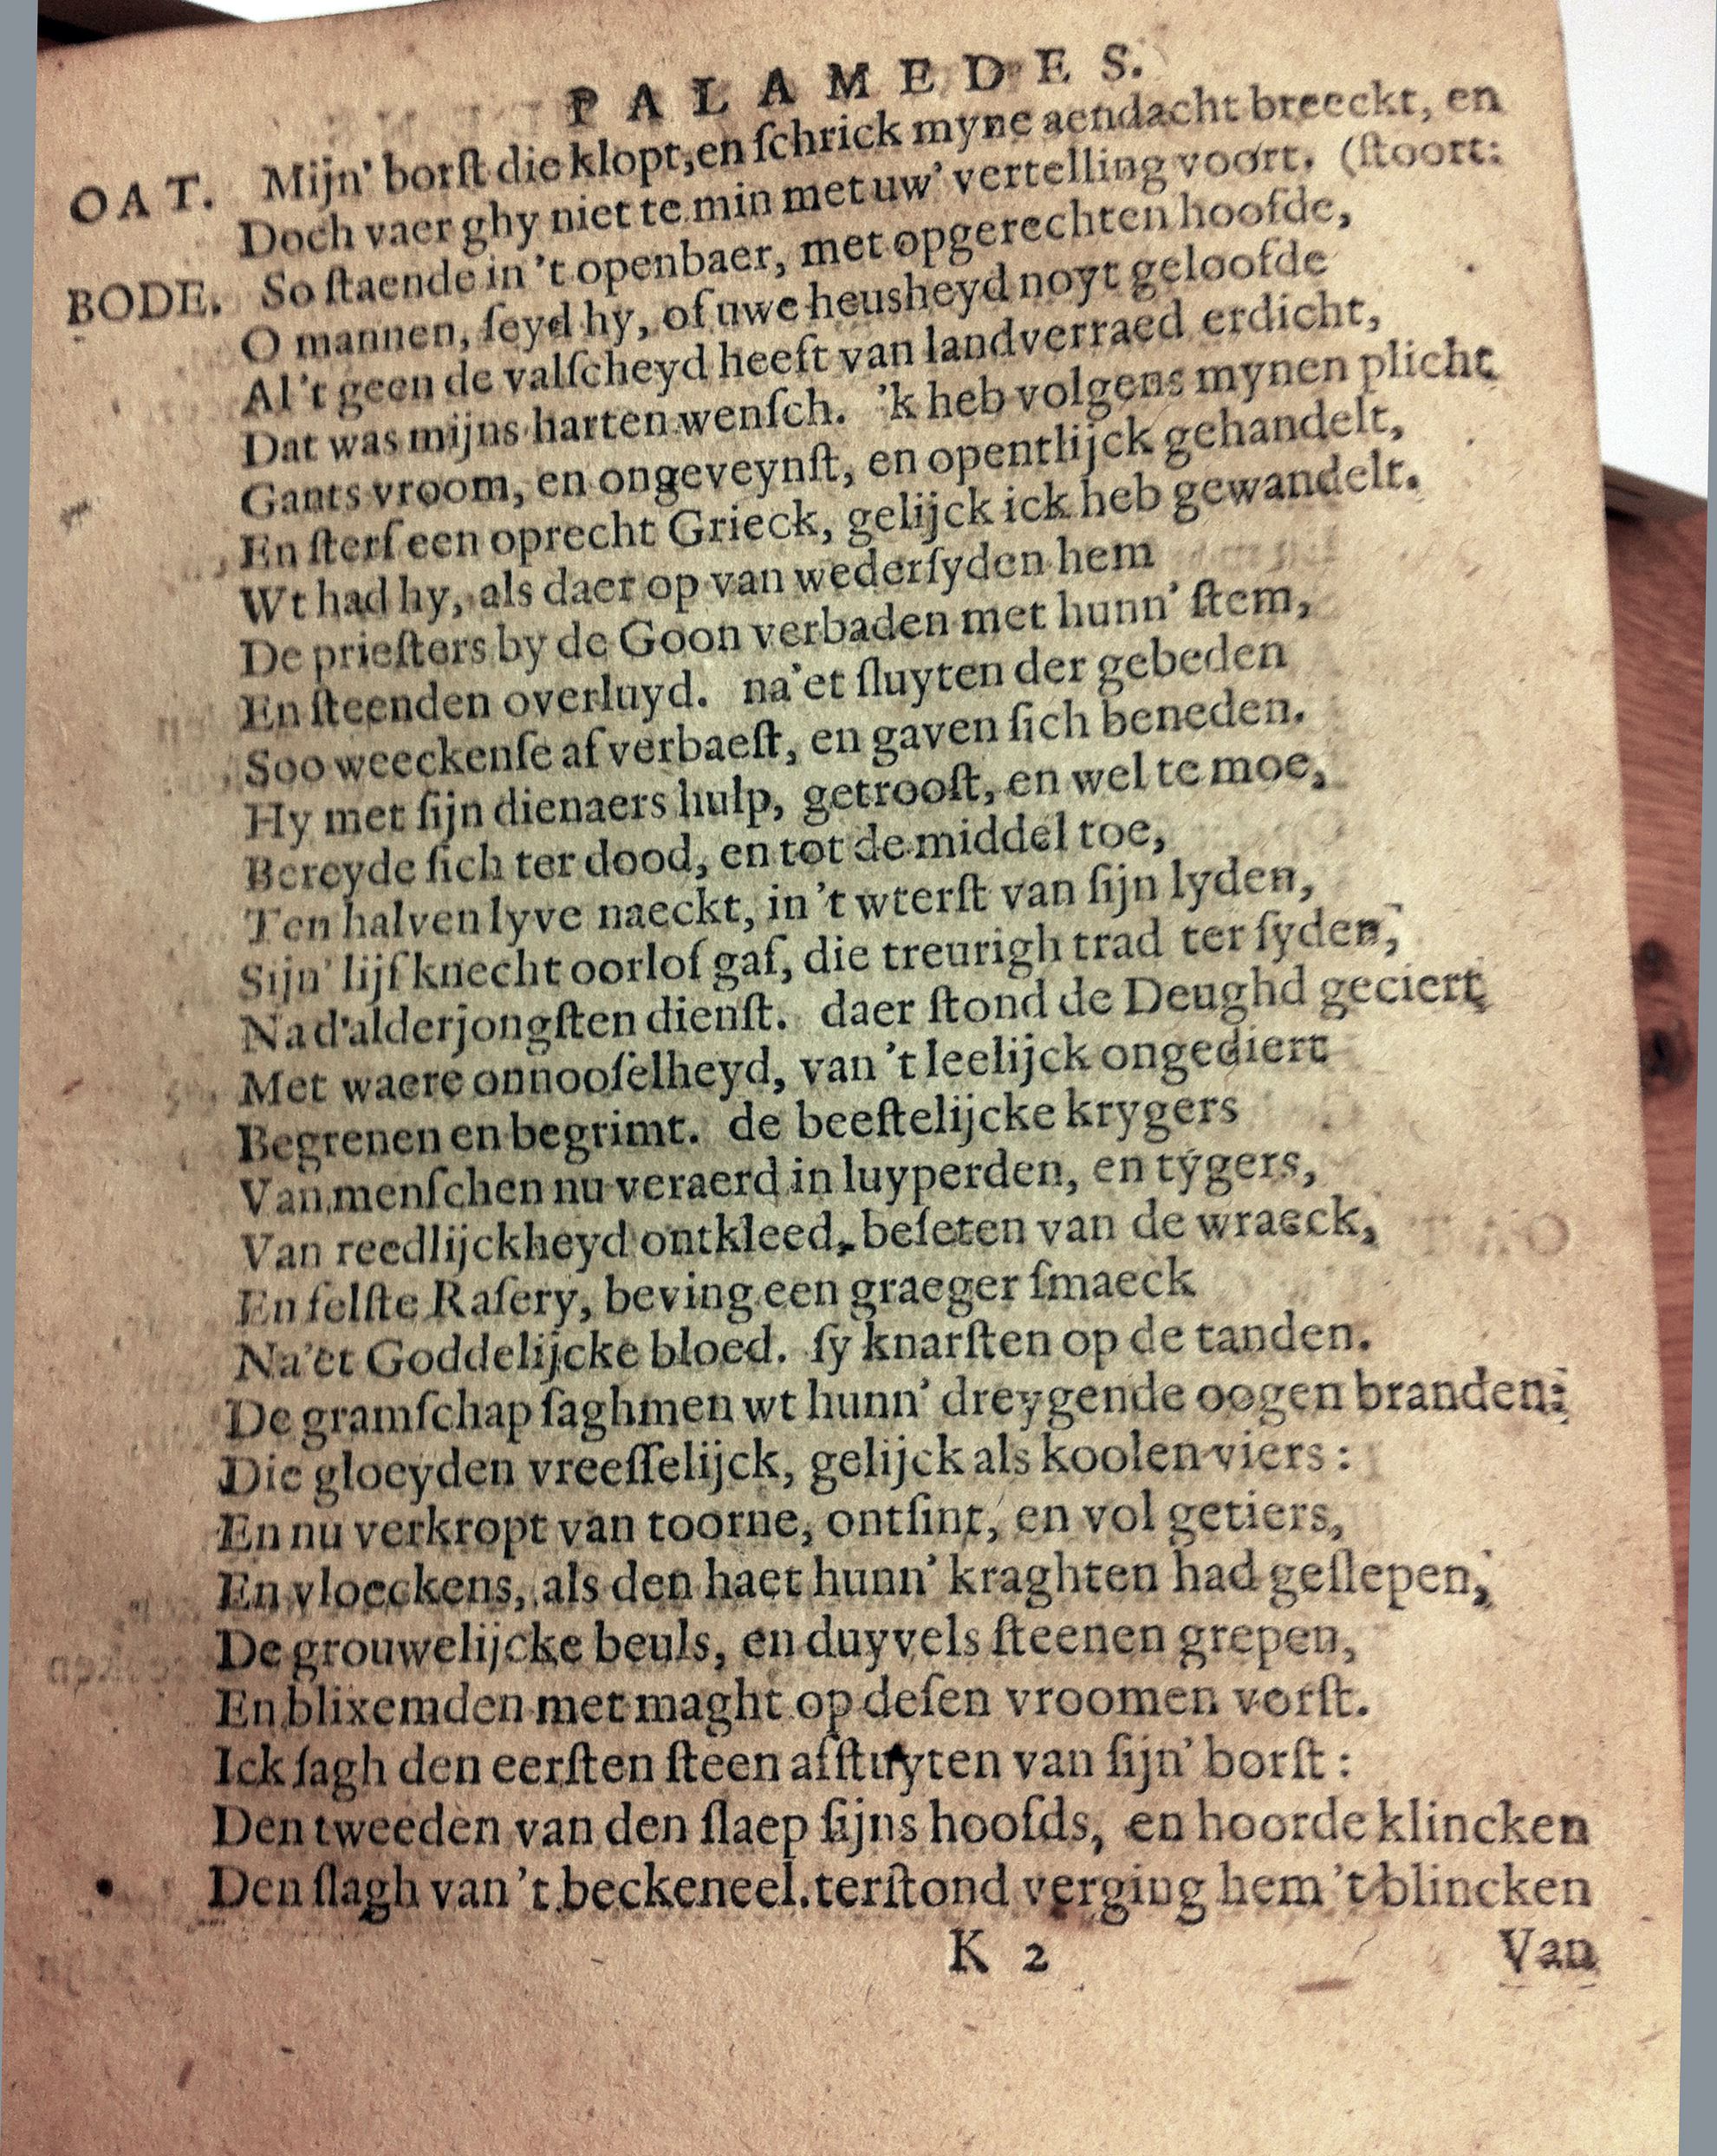 PALAMEDES.
OAT. Mijn' borſt die klopt, en ſchrick myne aendacht breeckt, en
Doch vaer ghy niet te min met uw' vertelling voort. (ſtoort:
BODE. So ſtaende in 't openbaer, met opgerechten hoofde,
O mannen, ſeyd hy, of uwe heusheyd noyt geloofde
Al 't geen de valſcheyd heeft van landverraed erdicht,
Dat was mijns harten wenſch. 'k heb volgens mynen plicht
Gants vroom, en ongeveynſt, en opentlijck gehandelt,
En ſterf een oprecht Grieck, gelijck ick heb gewandelt.
Wt had hy, als daer op van wederſyden hem
De prieſters by de Goon verbaden met hunn' ſtem,
En ſteenden overluyd. na'et ſluyten der gebeden
Soo weeckenſe af verbaeſt, en gaven ſich beneden.
Hy met ſijn dienaers hulp, getrooſt, en wel te moe,
Bereyde ſich ter dood, en tot de middel toe,
Ten halven lyve naeckt, in 't wterſt van ſijn lyden,
Sijn' lijfknecht oorlof gaf, die treurigh trad ter ſyden,
Na d'alderjongſten dienſt. daer ſtond de Deughd geciert
Met waere onnooſelheyd, van 't leelijck ongediert
Begrenen en begrimt. de beeſtelijcke krygers
Van menſchen nu veraerd in luyperden, en tygers,
Van reedlijckheyd ontkleed, beſeten van de wraeck,
En felſte Raſery, beving een graeger ſmaeck
Na'et Goddelijcke bloed. ſy knarſten op de tanden.
De gramſchap ſaghmen wt hunn' dreygende oogen branden:
Die gloeyden vreeſſelijck, gelijck als koolen viers:
En nu verkropt van toorne, ontſint, en vol getiers,
En vloeckens, als den haet hunn' kraghten had geſlepen,
De grouwelijcke beuls, en duyvels ſteenen grepen,
En blixemden met maght op deſen vroomen vorſt.
Ick ſagh den eerſten ſteen afſtuyten van ſijn' borſt:
Den tweeden van den ſlaep ſijns hoofds, en hoorde klincken
Den ſlagh van 't beckeneel. terſtond verging hem 't blincken
K 2 Van